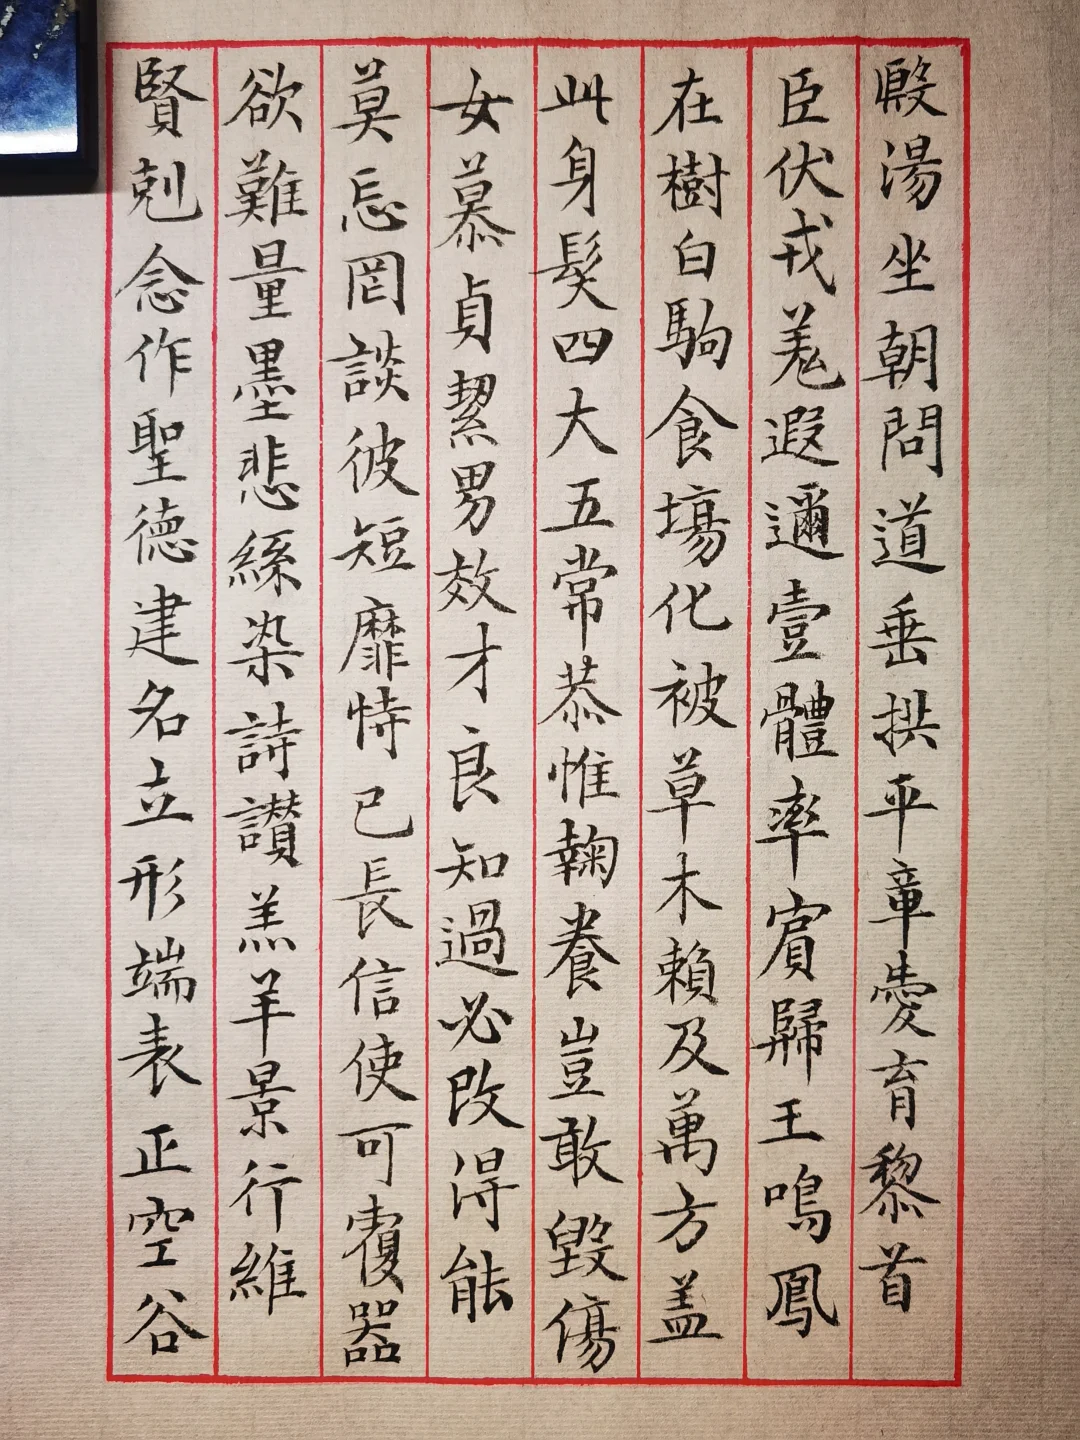 殷湯坐朝問道垂拱平章愛育黎首
臣伏戎羌遐邇壹體率賓歸王鳴鳳
在樹白駒食場化被草木賴及萬方蓋
此身髮四大五常恭惟鞠養豈敢毀傷
女慕貞絜男效才良知過必改得能
莫忘罔談彼短靡恃己長信使可覆器
欲難量墨悲絲染詩讚羔羊景行維
賢剋念作聖德建名立形端表正空谷